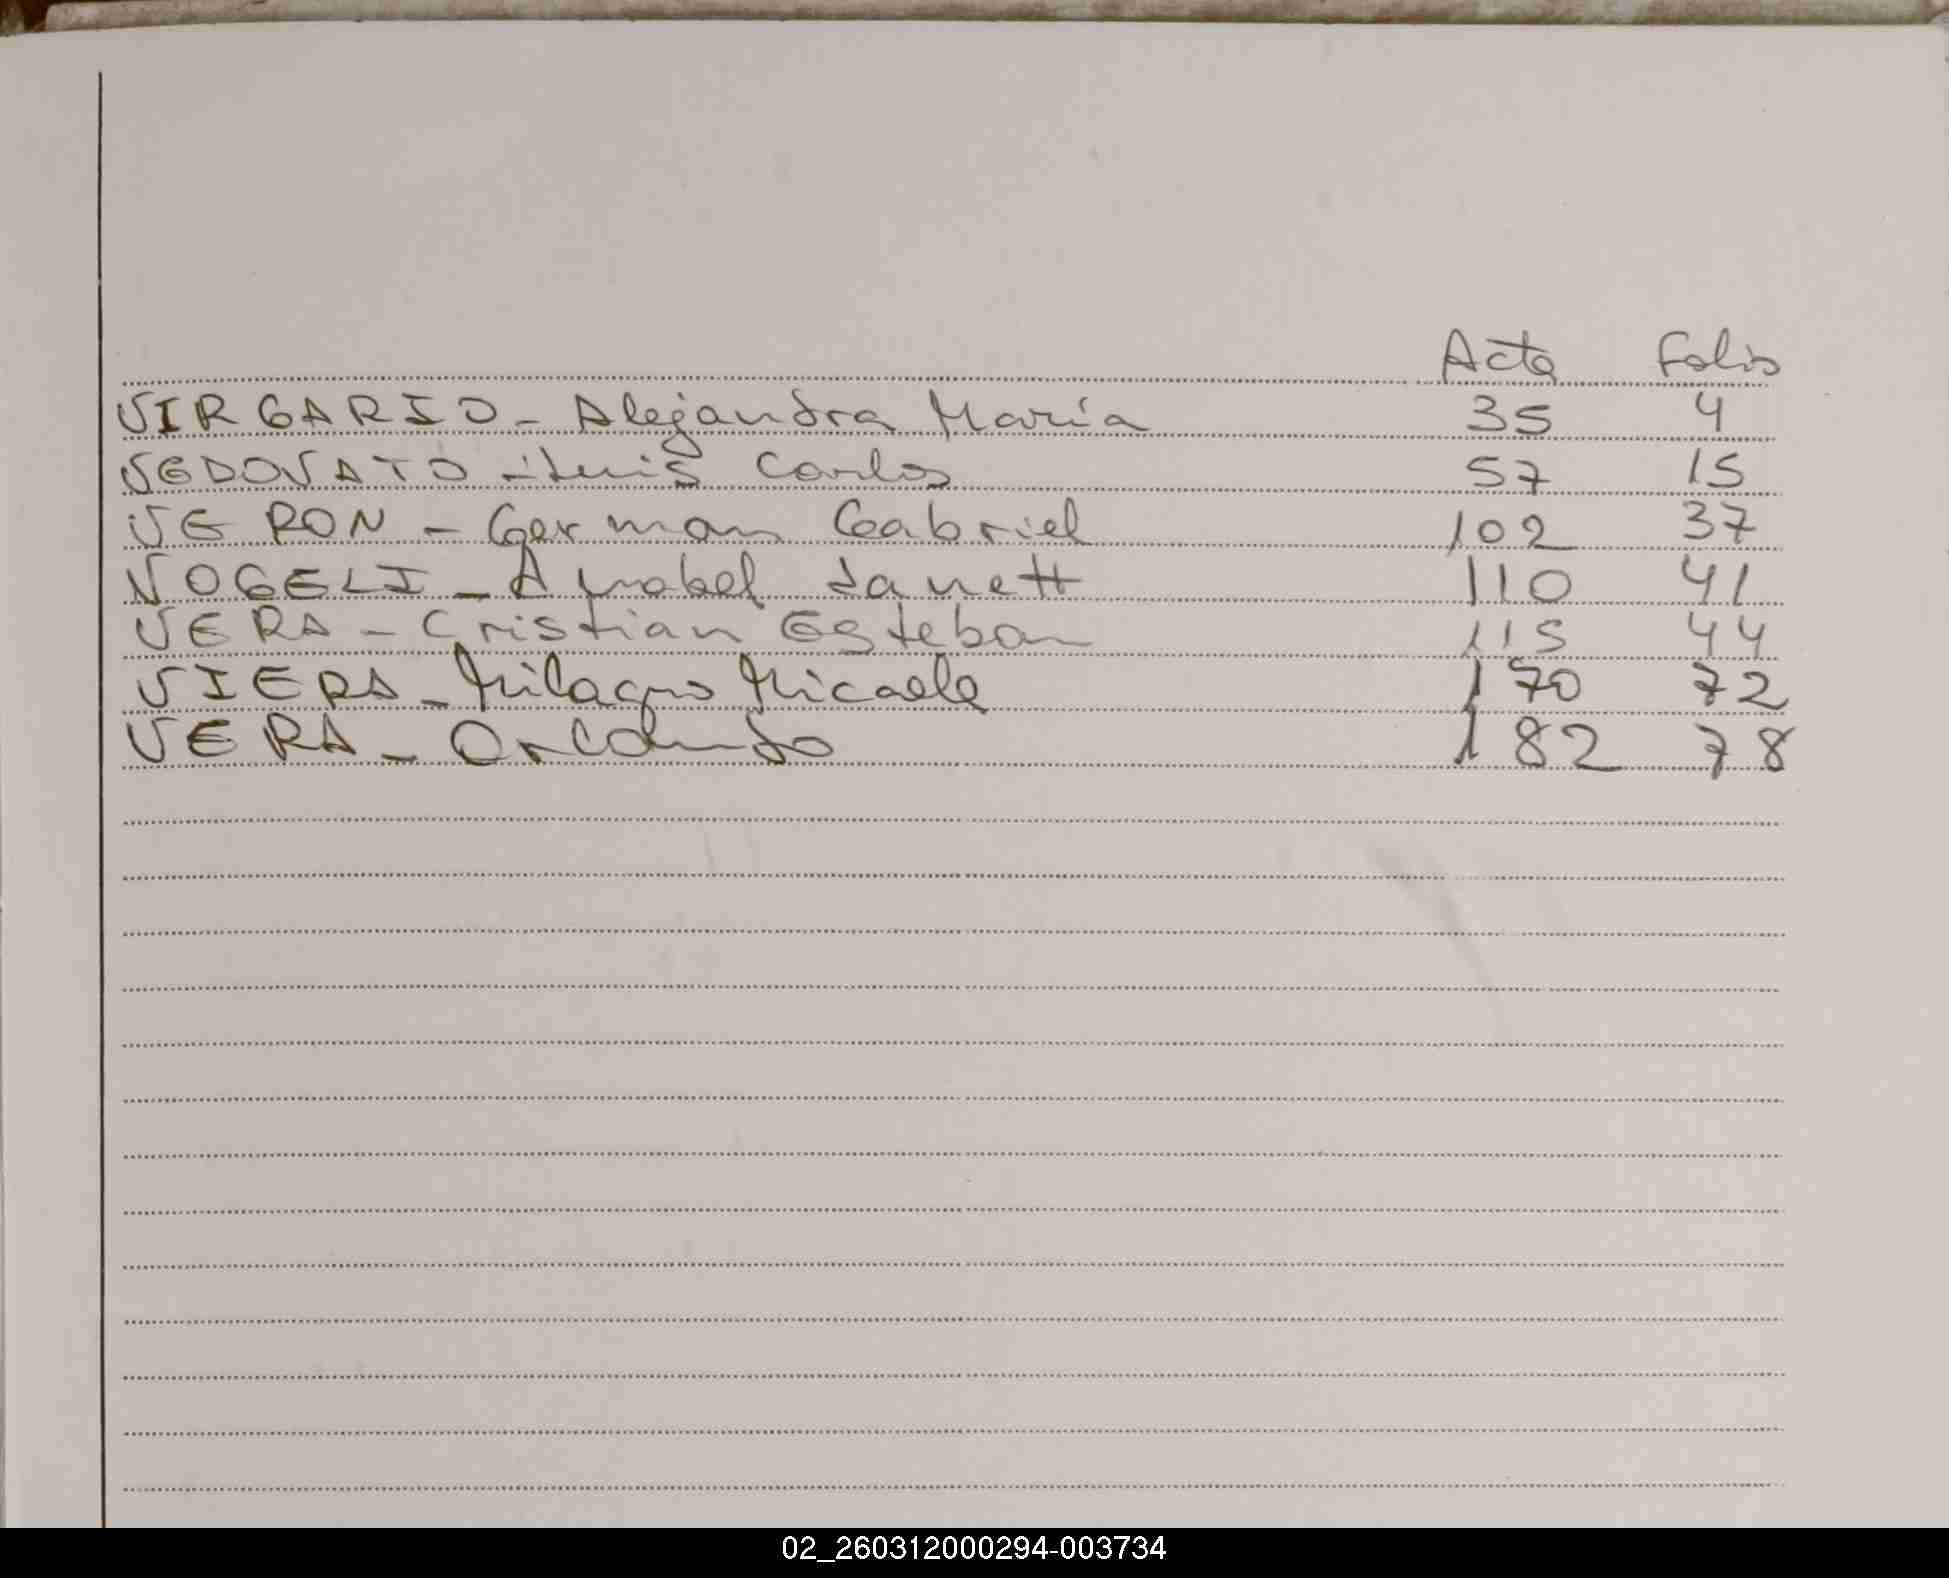 Acta Folio
VIRGARIO - Alejandra María 35 4
VEDOVATO - Luis Carlos 57 15
VERON - German Gabriel 102 37
VOGELI - Anabel Janett 110 41
VERA - Cristian Esteban 115 44
VIERA - Milagro Micaela 170 72
VERA - Orlando 182 78
02_260312000294-003734